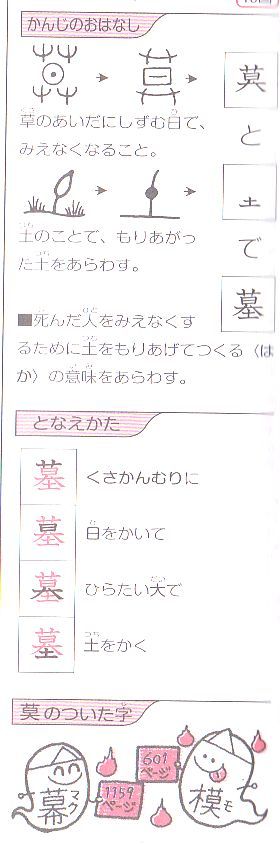 かんじのおはなし
莫
草のあいだにしずむ日で、
みえなくなること。
と
土
土のことで、もりあがっ
た土をあらわす。
で
墓
■死んだ人をみえなくす
るために土をもりあげてつくる〈は
か〉の意味をあらわす。
となえかた
墓 くさかんむりに
墓 日をかいて
墓 ひらたい大で
墓 土をかく
莫のついた字
幕 マク
1159ページ
601ページ
模 モ